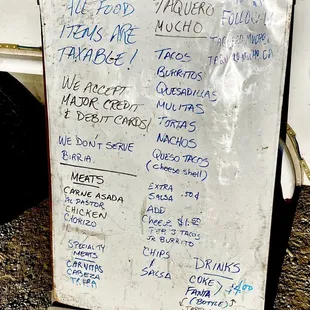 ALL FOOD
ITEMS ARE
TAXABLE!
WE ACCEPT
MAJOR CREDIT
& DEBIT CARDS!
WE DON'T SERVE
BIRRIA.
MEATS
CARNE ASADA
AL PASTOR
CHICKEN
CHORIZO
SPECIALTY
MEATS
CARNITAS
CABEZA
TRIPA
TAQUERO
MUCHO
TACOS
BURRITOS
QUESADILLAS
MULITAS
TORTAS
NACHOS
QUESO TACOS
(cheese shell)
EXTRA
SALSA .50¢
ADD
Cheese $1.00
TOP 3 TACOS
JR BURRITO
CHIPS
&
SALSA
FOLLOW
DRINKS
COKE
FANTA
(BOTTLE)